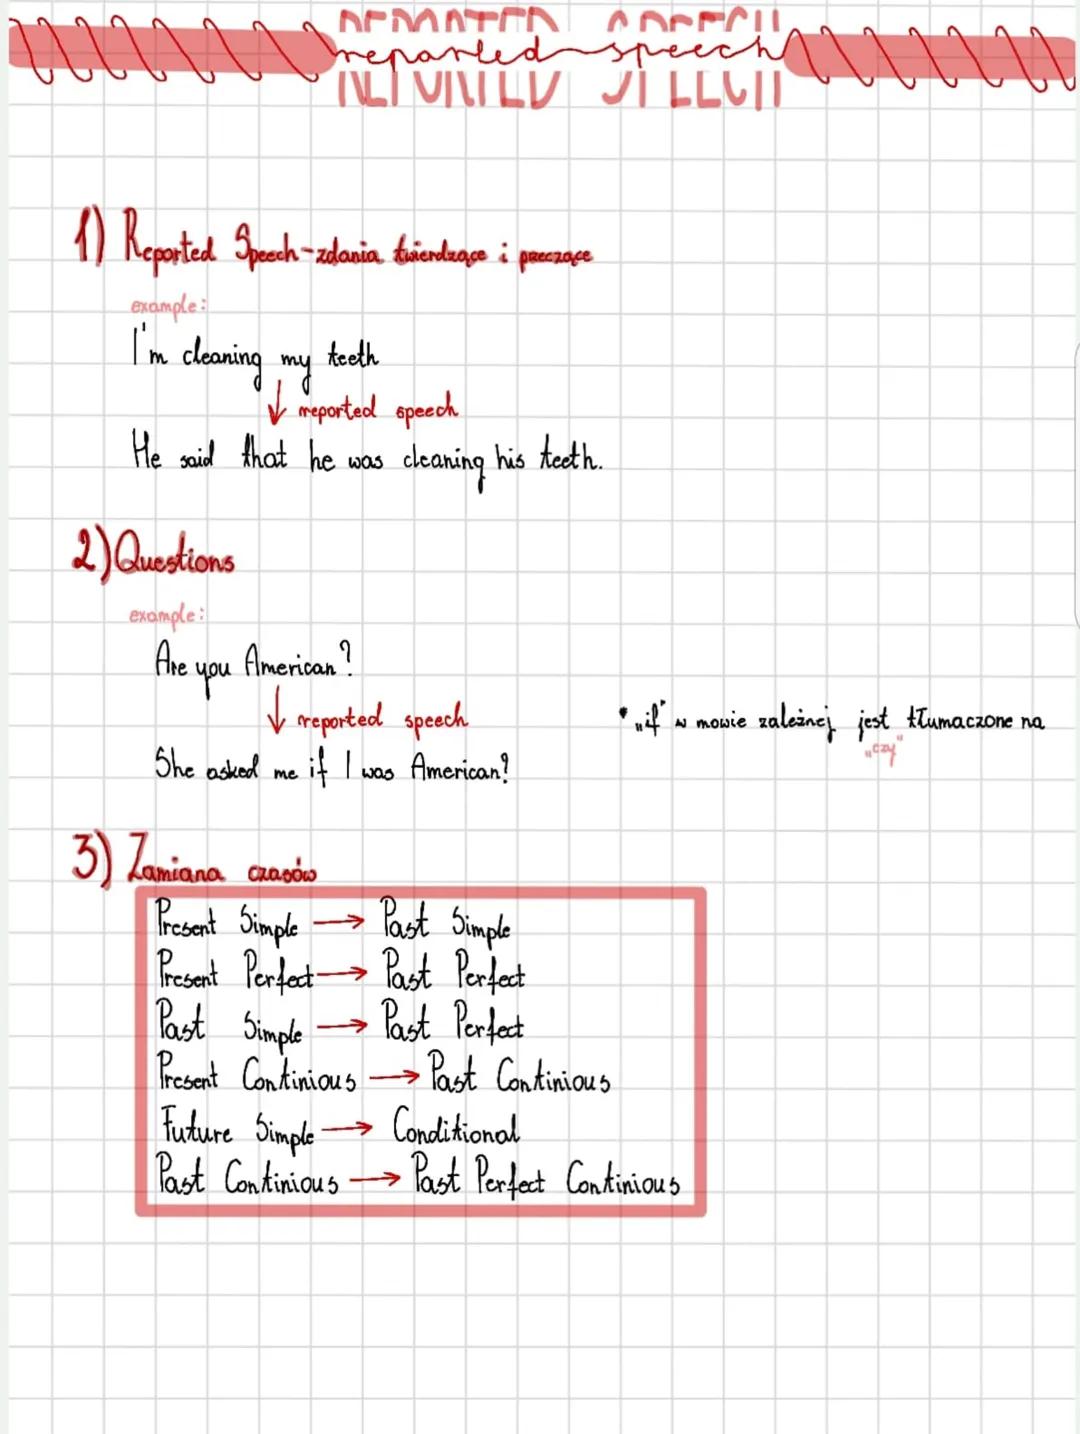 REPORTED SPEECH
reported speech
1) Reported Speech-zdania twierdzące i przeczące
example:
I'm cleaning my teeth
reported speech
He said that he was cleaning his teeth.
2) Questions
example:
Are you American?
reported speech
She asked me if I was American?
* „if" w mowie zależnej jest tłumaczone na
„czy"
3) Zamiana czasów
Present Simple → Past Simple
Present Perfect → Past Perfect
Past Simple → Past Perfect
Present Continious → Past Continious
Future Simple → Conditional
Past Continious → Past Perfect Continious